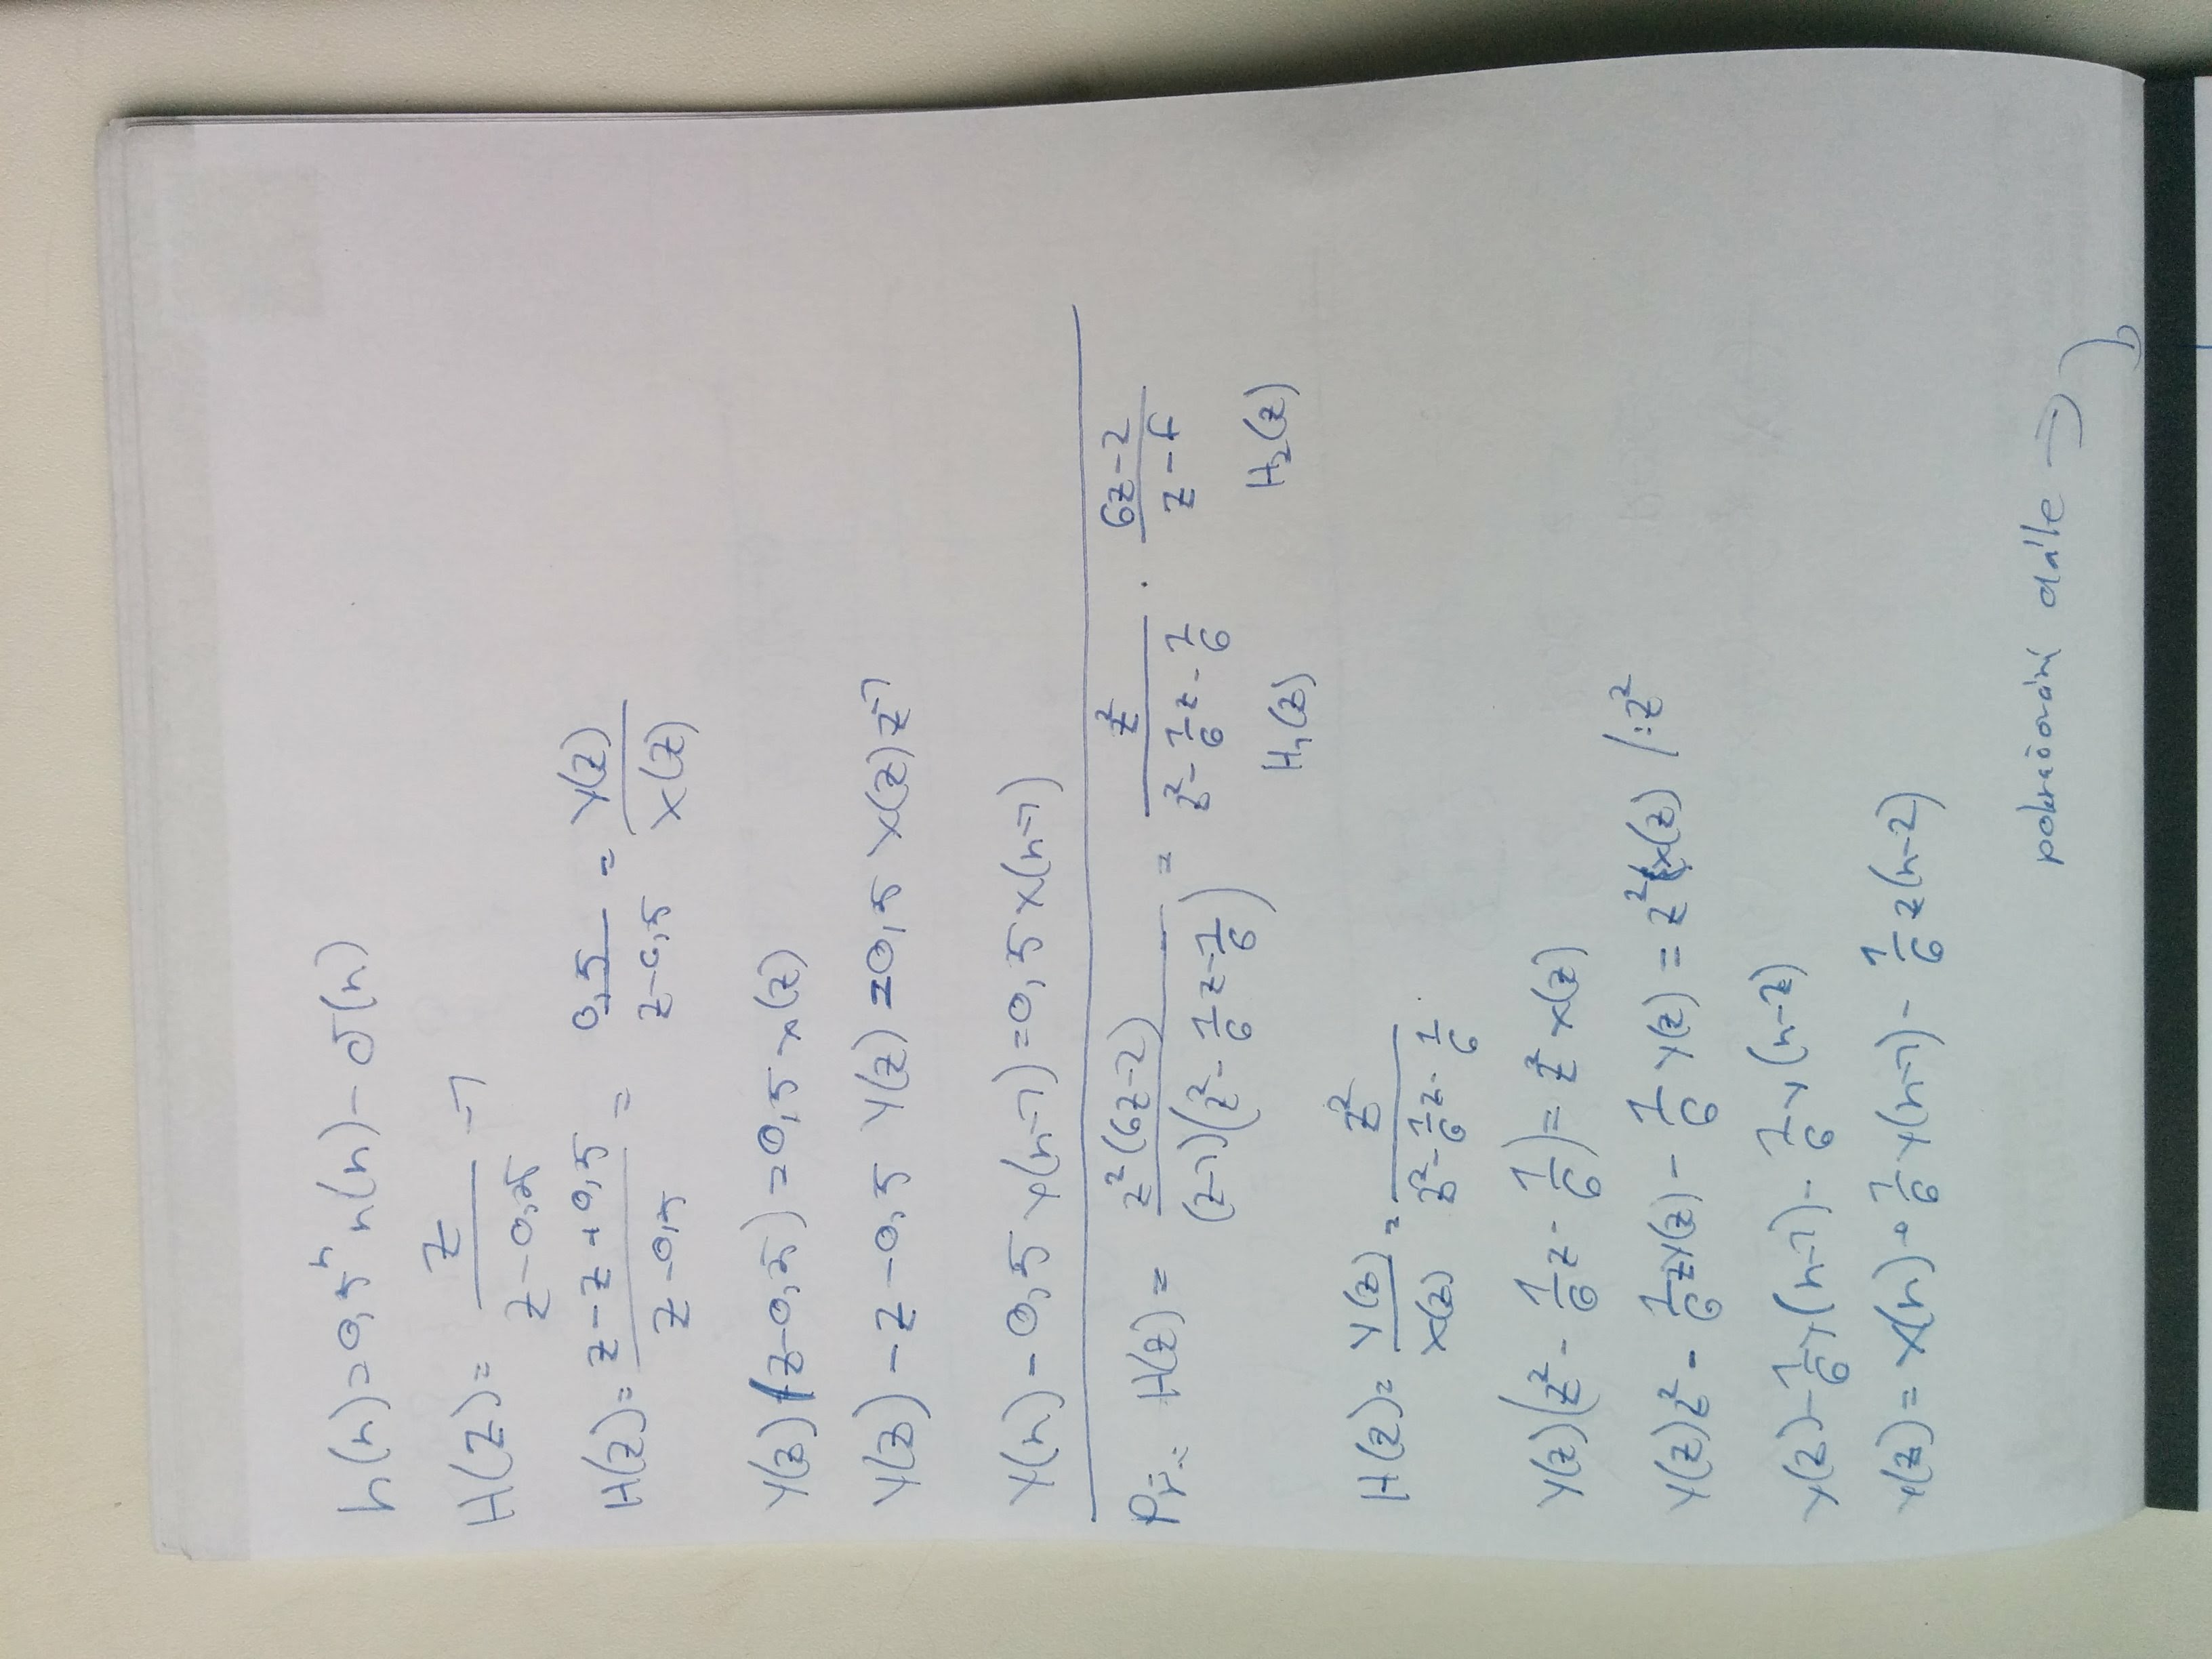 h(n) = 0,5ⁿ u(n) - σ(n)
H(z) = z / (z - 0,5) - 1
H(z) = (z - z + 0,5) / (z - 0,5) = 0,5 / (z - 0,5) = Y(z) / X(z)
Y(z) (z - 0,5) = 0,5 X(z)
Y(z) - z - 0,5 Y(z) = 0,5 X(z) z⁻¹
Y(n) - 0,5 y(n-1) = 0,5 x(n-1)
Př.: H(z) = z² (6z - 2) / (z-1)(z² - 1/6 z - 1/6) = z² / (z² - 1/6 z - 1/6) · (6z - 2) / (z - 1)
H₁(z) H₂(z)
H(z) = Y(z) / X(z) = z² / (z² - 1/6 z - 1/6)
Y(z) (z² - 1/6 z - 1/6) = z² X(z)
Y(z) z² - 1/6 z Y(z) - 1/6 Y(z) = z² X(z) /:z²
y(z) - 1/6 y(n-1) - 1/6 y(n-2)
y(z) = x(n) + 1/6 y(n-1) - 1/6 z(n-2)
pokračování dále →